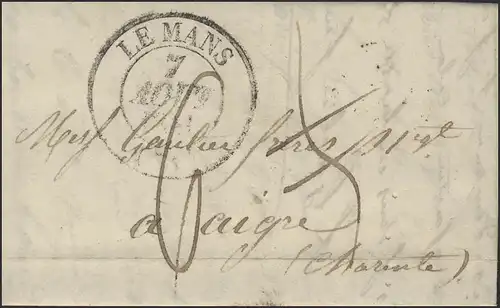 LE MANS
7
AOUT
Mess Gautier frères
a aigre
(Charente)